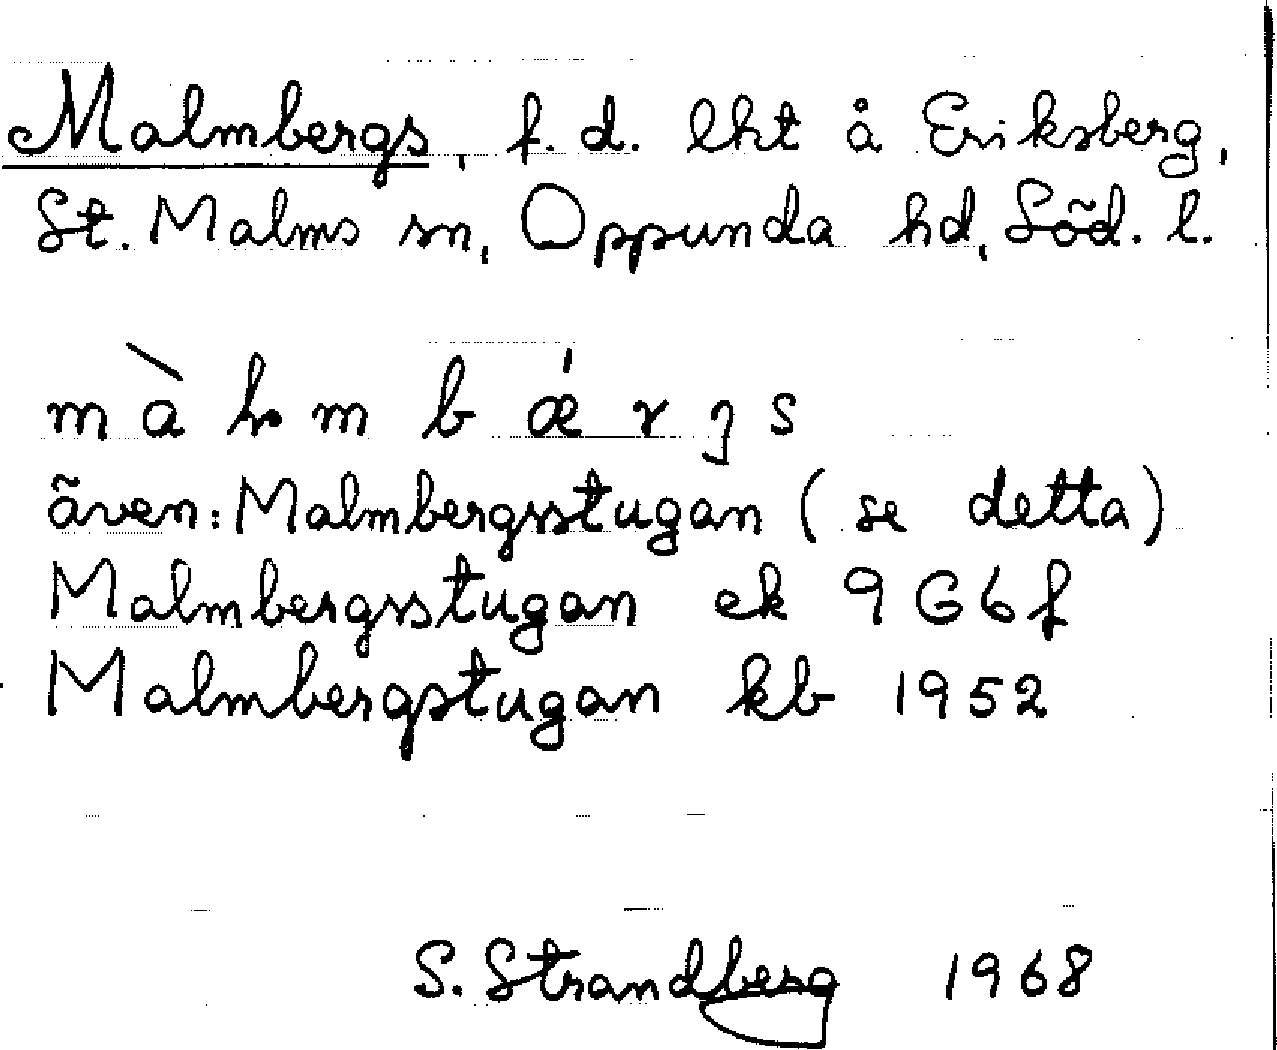 Malmbergs, f.d. lht å Eriksberg,
St. Malms sn, Oppunda hd, Söd. l.
även: Malmbergsstugan (se detta)
Malmbergsstugan ek 9G6f
Malmbergstugan kb 1952
S. Strandberg 1968